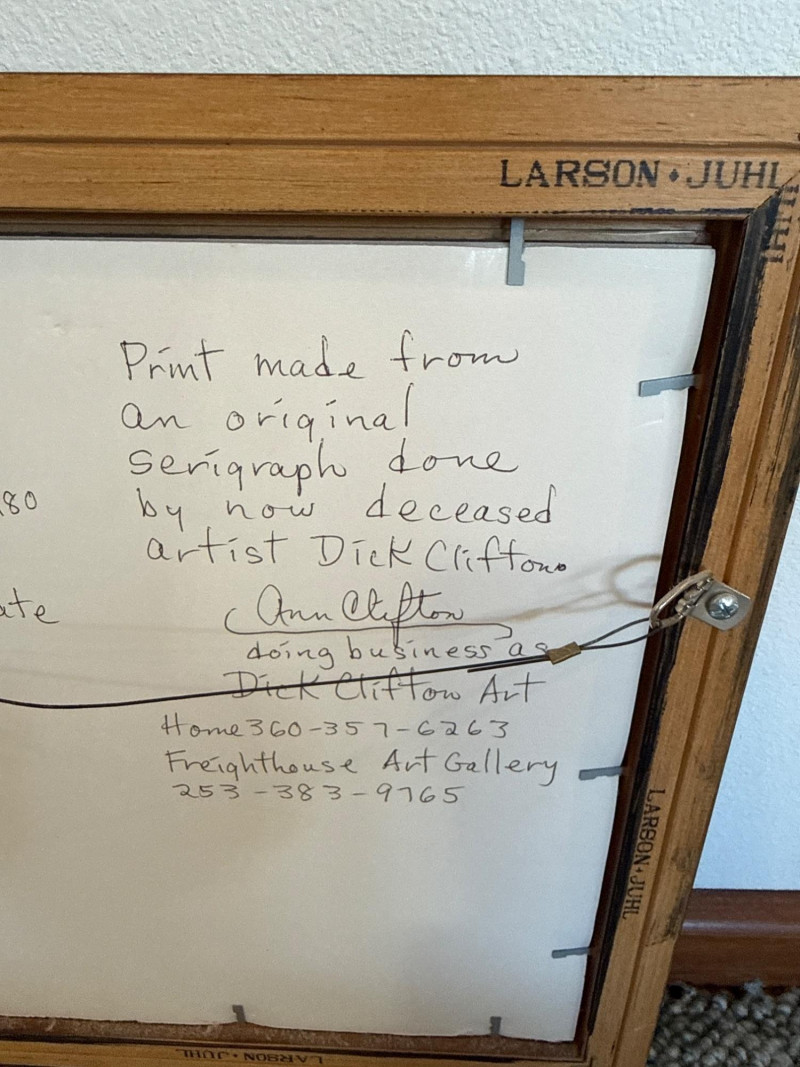 LARSON • JUHL
JUHL
Print made from
an original
serigraph done
by now deceased
artist Dick Clifton.
Ann Clifton
doing business as
Dick Clifton Art
Home 360-357-6263
Freighthouse Art Gallery
253-383-9765
80
ate
LARSON • JUHL
LARSON • JUHL